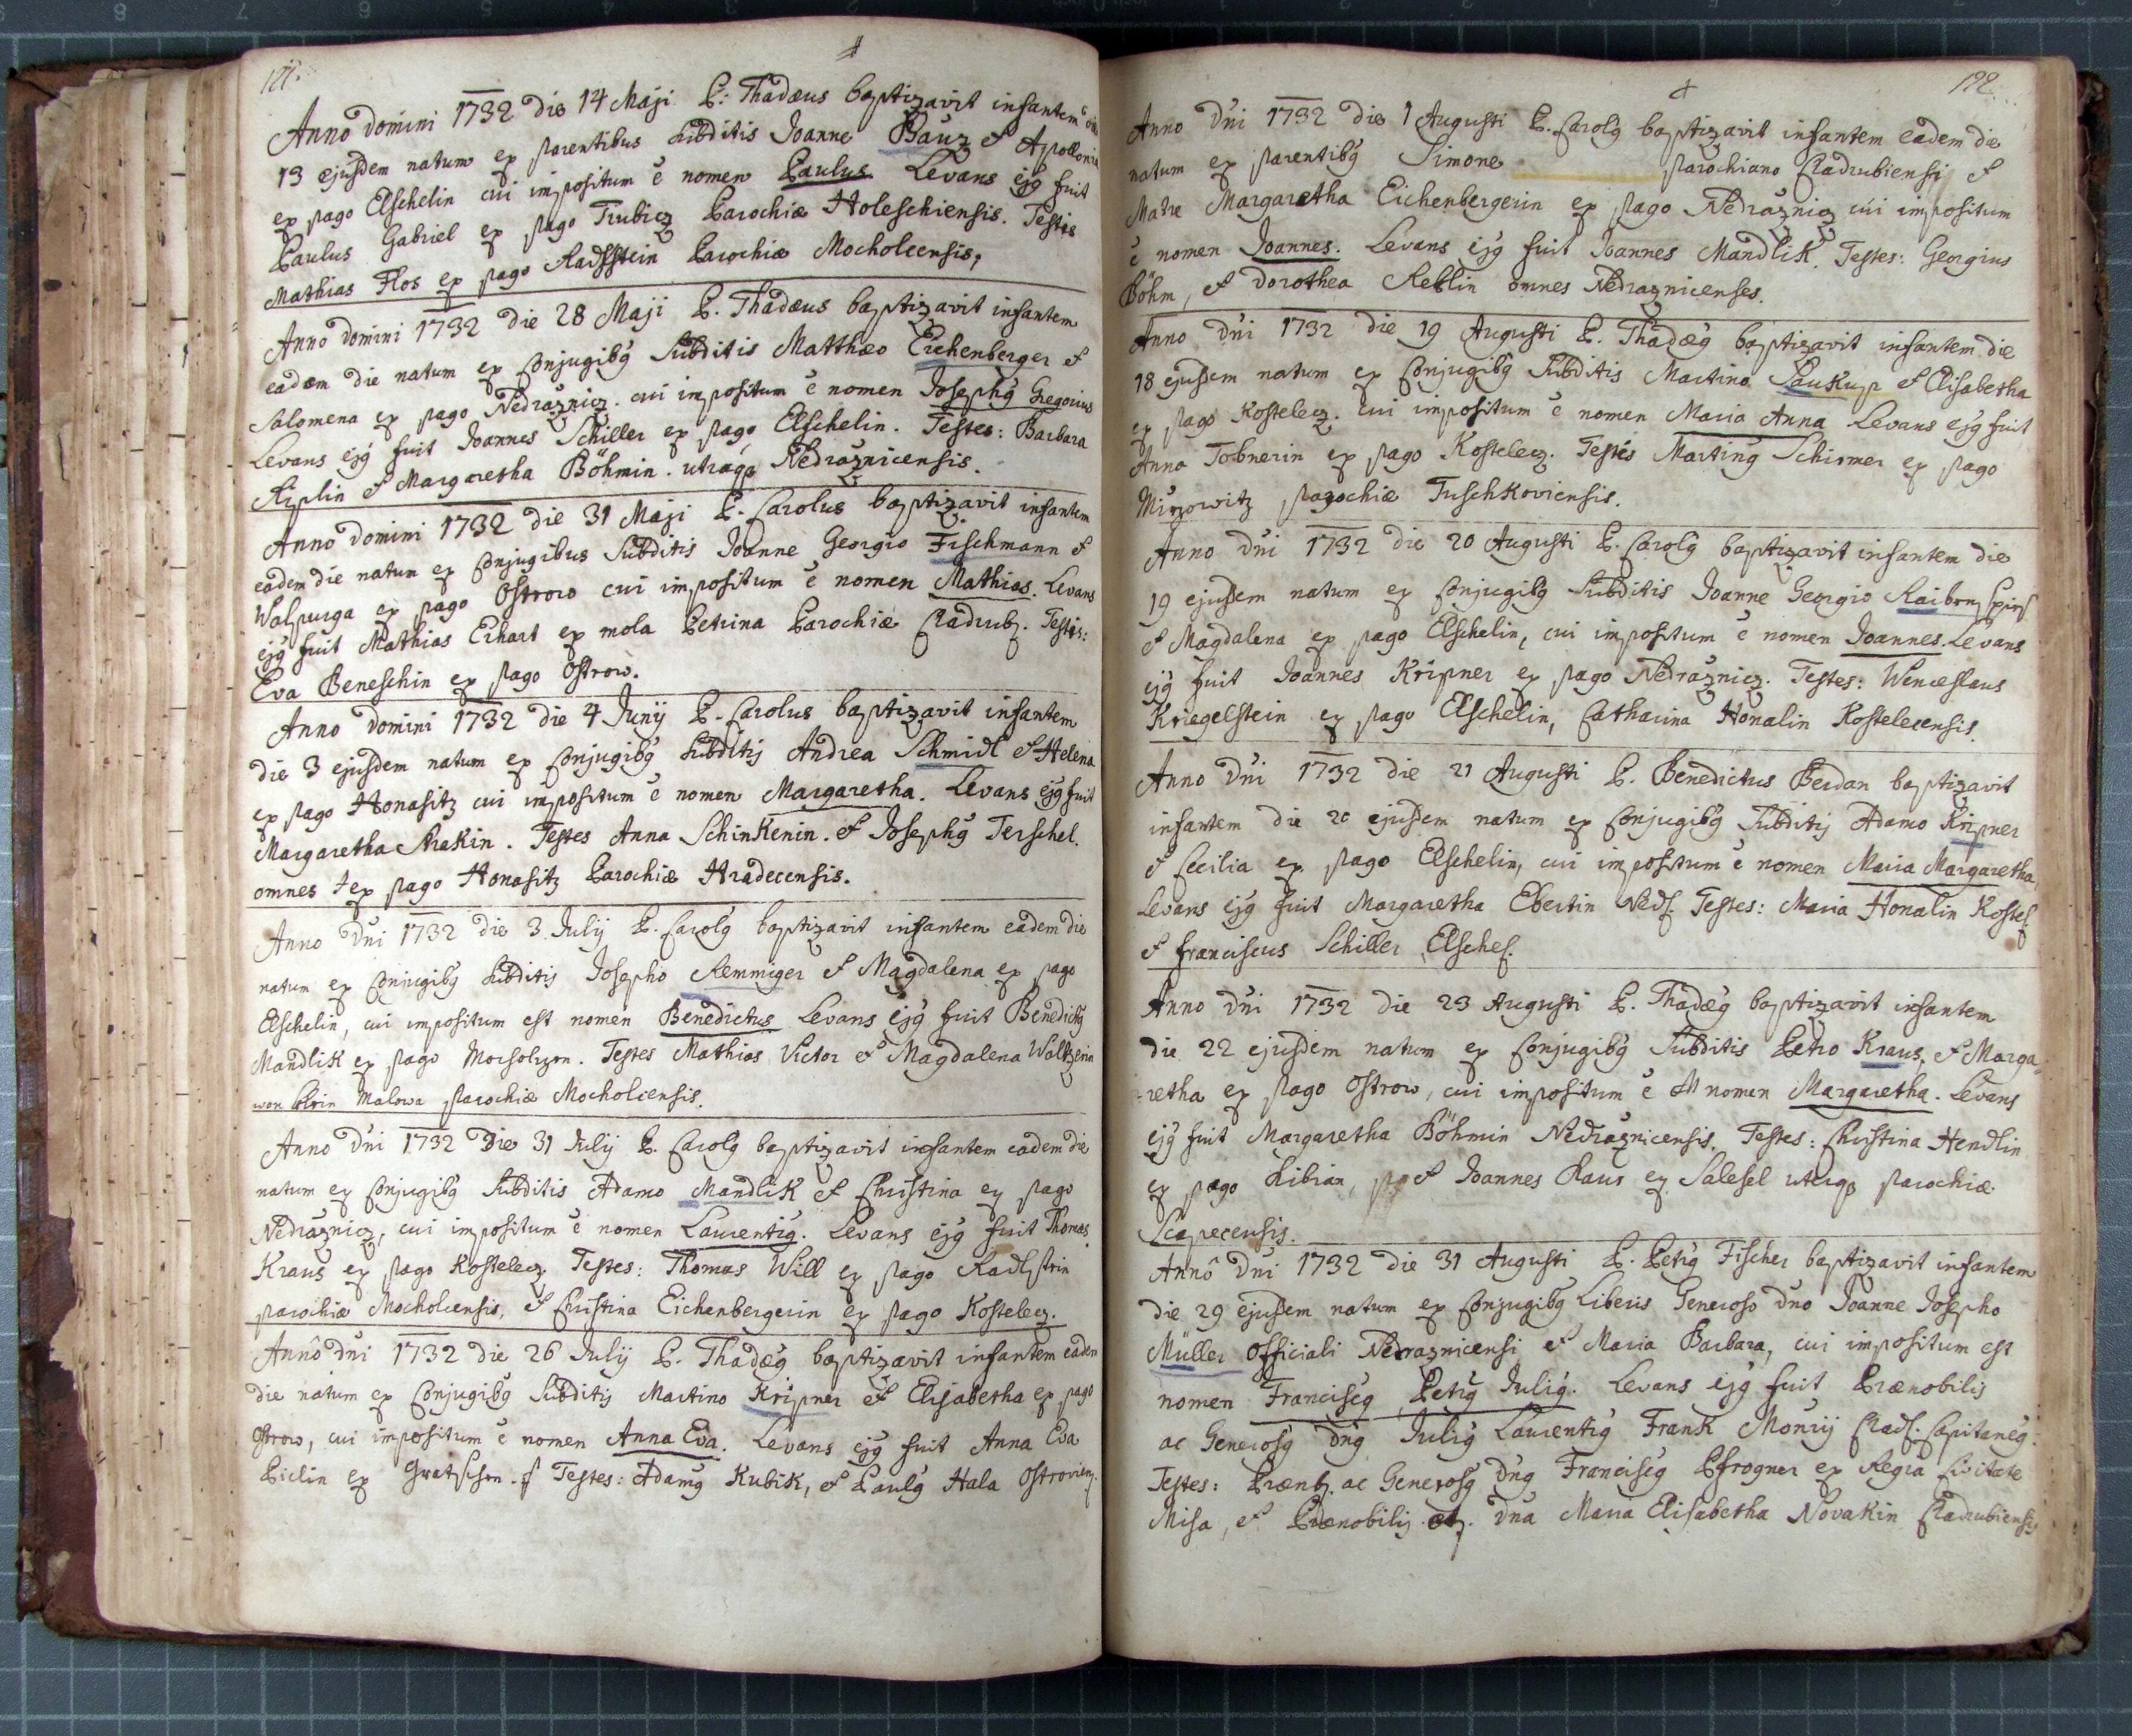 Anno Domini 1732 die 14 Maji P: Thadæus baptizavit infantem die
13 ejusdem natum ex parentibus subditis Joanne Bauz et Apollonia
ex pago Elschelin cui impositum ē nomen Paulus Levans ejꝰ fuit
Paulus Gabriel ex pago Trubicz Parochiæ Holeschiensis. Testis
Mathias Flos ex pago Radlstein Parochiæ Mocholcensis,
Anno Domini 1732 die 28 Maji P. Thadæus baptizavit infantem
eadem die natum ex Conjugibꝰ Subditis Matthæo Eichenberger et
Salomena ex pago Nedražnicz. cui impositum ē nomen Josephꝰ Gregorius
Levans ejꝰ fuit Joannes Schiller ex pago Elschelin. Testes: Barbara
Riplin et Margaretha Böhmin. utraqꝫ Nedražnicensis.
Anno Domini 1732 die 31 Maji P. Carolus baptizavit infantem
eadem die natum ex Conjugibus Subditis Joanne Georgio Fischmann et
Walpurga ex pago Ostrow cui impositum ē nomen Mathias. Levans
ejꝰ fuit Mathias Erhart ex mola Petrina Parochiæ Cladrub. Testis:
Eva Beneschin ex pago Ostrow.
Anno Domini 1732 die 4 Junij P. Carolus baptizavit infantem
die 3 ejusdem natum ex Conjugibꝰ subditis Andrea Schmidl et Helena
ex pago Honasitz cui impositum ē nomen Margaretha. Levans ejꝰ fuit
Margaretha Skakin. Testes Anna Schinkenin. et Josephꝰ Terschel.
omnes ex pago Honasitz Parochiæ Hradecensis.
Anno Dni 1732 die 3 Julij P. Carolꝰ baptizavit infantem eadem die
natum ex Conjugibꝰ subditis Josepho Remmiger et Magdalena ex pago
Elschelin, cui impositum est nomen Benedictus Levans ejꝰ fuit Benedictꝰ
Mandlik ex pago Morsolzon. Testes Mathias Victor et Magdalena Waltzerin
von Klein Malowa parochiæ Mocholcensis.
Anno Dni 1732 Die 31 Julij P. Carolꝰ baptizavit infantem eadem die
natum ex Conjugibꝰ Subditis Adamo Mandlik et Christina ex pago
Nedražnicz, cui impositum ē nomen Laurentiꝰ. Levans ejꝰ fuit Thomas
Kraus ex pago Kostelecz. Testes: Thomas Will ex pago Radlstein
parochiæ Mocholcensis, et Christina Eichenbergerin ex pago Kostelecz.
Anno Dni 1732 die 26 Julij P. Thadæꝰ baptizavit infantem eadem
die natum ex Conjugibꝰ Subditis Martino Kripner et Elisabetha ex pago
Ostrow, cui impositum ē nomen Anna Eva. Levans ejꝰ fuit Anna Eva
Piclin ex Testes: Adamꝰ Kubik, et Paulꝰ Hala Ostroviens.
192
Anno Dni 1732 die 1 Augusti P. Carolꝰ baptizavit infantem eadem die
natum ex parentibꝰ Simone parochiano Cladrubiensi et
Matre Margaretha Eichenbergerin ex pago Nedražnicz cui impositum
ē nomen Joannes. Levans ejꝰ fuit Joannes Mandlik. Testes: Georgius
Böhm, et Dorothea Reblin omnes Nedražnicenses.
Anno Dni 1732 die 19 Augusti P. Thadæꝰ baptizavit infantem die
18 ejusdem natum ex Conjugibꝰ Subditis Martino Paukup et Elisabetha
ex pago Kostelecz. cui impositum ē nomen Maria Anna Levans ejꝰ fuit
Anna Tobnerin ex pago Kostelecz. Testis Martinꝰ Schirmer ex pago
Mirzowitz parochiæ Tuschkoviensis.
Anno Dni 1732 die 20 Augusti P. Carolꝰ baptizavit infantem die
19 ejusdem natum ex Conjugibꝰ Subditis Joanne Georgio
et Magdalena ex pago Elschelin, cui impositum ē nomen Joannes. Levans
ejꝰ fuit Joannes Kripner ex pago Nedražnicz. Testes: Wenceslaus
Kriegelstein ex pago Elschelin, Catharina Honalin Kostelecensis.
Anno Dni 1732 die 21 Augusti P. Benedictus Berdan baptizavit
infantem die 20 ejusdem natum ex Conjugibꝰ Subditis Adamo Kripner
et Cecilia ex pago Elschelin, cui impositum ē nomen Maria Margaretha,
Levans ejꝰ fuit Margaretha Ebertin Nedr. Testes: Maria Honalin Kostel.
et Franciscus Schiller Elschel.
Anno Dni 1732 die 23 Augusti P. Thadæꝰ baptizavit infantem
die 22 ejusdem natum ex Conjugibꝰ Subditis Petro Kraus, et Marga-
-retha ex pago Ostrow, cui impositum ē nomen Margaretha. Levans
ejꝰ fuit Margaretha Böhmin Nedražnicensis, Testes: Christina Hendlin
ex pago Libian, et Joannes Raus ex Salesel uterqꝫ parochiæ
Scaprecensis.
Anno Dni 1732 die 31 Augusti P. Petrꝰ Fischer baptizavit infantem
die 29 ejusdem natum ex Conjugibꝰ Liberis Generoso Dno Joanne Josepho
Müller Officiali Nedražnicensi et Maria Barbara, cui impositum est
nomen Franciscꝰ Petrꝰ Juliꝰ. Levans ejꝰ fuit Prænobilis
ac Generosꝰ Dnꝰ Juliꝰ Laurentiꝰ Frank Monrij Clad. Capitaneꝰ.
Testes: Prænb. ac Generosꝰ Dnꝰ Franciscꝰ Pfrogner ex Regia Civitate
Misa, et Prænobilis Dna Maria Elisabetha Novakin Cladrubiensis